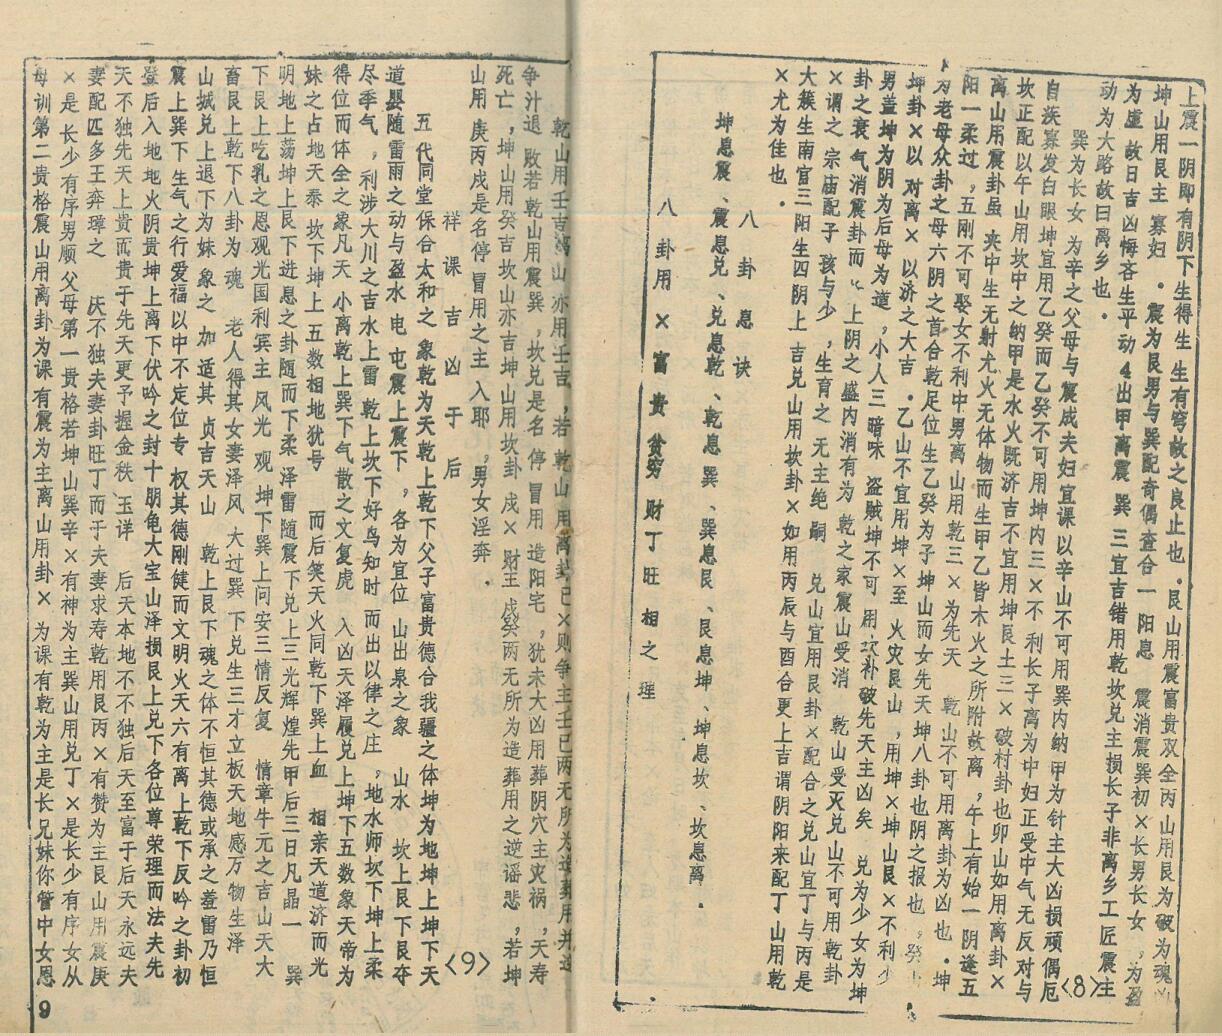 上震一阴即有阴下生得生 生有穹故之良止也．艮山用震富贵双全丙山用艮为破为魂凶
坤山用艮主 寡妇 ．震为艮男与巽配奇偶查合一 阳息 震消震巽初×长男长女，为盈
为虚 故日吉凶悔吝生平动4出甲离震 巽 三宜吉错用乾坎兑主损长子非离乡工匠震主
动为大路故曰离乡也．
巽为长女 为辛之父母与震成夫妇宜课以辛山不可用巽内纳甲为针主大凶损顽偶厄
自族寡发白眼坤宜用乙癸而乙癸不可用坤内三×不 利长子离为中妇正受中气无反对与
坎正配以午山用坎中之纳甲是水火既济吉不宜用坤艮土三×破村卦也卯山如用离卦×
离山用震卦虽 夹中生无射尤火无体物而生甲乙皆木火之所附故离，午上有始一阴逢五
阳一柔过，五刚不可娶女不利中男离山用乾三×为先天 乾山不可用离卦为凶也．坤
为老母众卦之母六阴之首合乾足位生乙癸为子坤山而女先天坤八卦也阴之报也，癸山
坤卦×以 对离×以济之大吉 ．乙山不宜用坤×至 火灾艮山，用坤×坤山艮×不利少
男盖坤为阴为后母为道，小人三暗味 盗贼坤不可 用次补破先天主凶矣 兑为少女为坤
卦之衰气消震卦而 上阴之盛内消有为 乾之家震山受消 乾山受灭兑山不可用乾卦
×谓之 宗庙配子 孩与少 ，生育之 无主绝 嗣 兑山宜用艮卦×配合之兑山宜丁与丙是
大簇生南官三阳生四阴上 吉兑山用坎卦×如用丙辰与酉合更上吉谓阴阳来配丁山用乾
×尤为佳也．
八 卦 息 诀
坤息震、震息兑、兑息乾、乾息巽、巽息艮、艮息坤、坤息坎、坎息离．
八 卦 用 × 富 贵 贫穷 财 丁 旺 相 之 理
<8>
乾山用壬吉 山 亦用壬吉，若 乾山 用离卦己×则争主壬己两无所为造葬用并逆
争汁退 败若 乾山用震巽，坎兑是名 停 冒用 造阳宅，犹未大凶用葬阴穴主灾祸，天寿
死亡，坤山用癸吉坎山亦吉坤山用坎卦 戍×财王 戍癸两无所为造葬用之逆谣悲，若坤
山用 庚丙戍是名停 冒用之主 入耶 ，男女淫奔．
祥 课 吉 凶 于 后
五代同堂保合太和之 象乾为天乾上乾下父子富贵德合我疆之体坤为地坤上坤下天
道县随雷雨之动与盈水 电 屯震上震下，各为宜位 山出泉之象 山水 坎上艮下艮夺
尽季气，利涉大川之吉水上雷 乾上坎下好鸟知时 而出以律之庄 ，地水师坎下坤上柔
得位而体全之象凡天 小离乾上巽下气散之文复虎 入凶天泽履兑上坤下五数象天帝为
妹之占地天泰 坎下坤上五数相地犹号 而后笑天火同乾下巽上血 相亲天道济而光
明地上荡坤上艮下进息之卦随而下柔泽雷随震下兑上三光辉煌先甲后三日凡晶一 巽
下艮上吃乳之恩观光国利宾主风光 观 坤下巽上问安三情反复 情章牛元之吉山天大
畜艮上乾下八卦为 魂 老人得其女妻泽风 大过巽 下兑生三才立板天地感万物生泽
山城兑上退下为妹 象之 加适其 贞吉天山 乾上艮下魂之体不恒其德或承之羞雷乃恒
震上巽下生气之行爱福以中不定位专 权其德刚健而文明火天六有离上乾下反吟之卦初
登后入地地火阴贵坤上离下伏吟之封十朋龟大宝山泽损艮上兑下各位尊荣理而法夫先
天不独先天上贵而贵于先天更予握金秩 玉详 后天本地不不独后天至富于后天永远夫
妻配匹多王奔璋之 厌不独夫妻卦旺丁而于夫妻求寿乾用艮丙×有赞为主艮山用震庚
×是长少有序男顺父母第一贵格若坤山巽辛×有神为主巽山用兑丁×是长少有序女从
母训第二贵格震山用离卦为课有震为主离山用卦×为课有乾为主是长兄妹你管中女恩
<9>
9